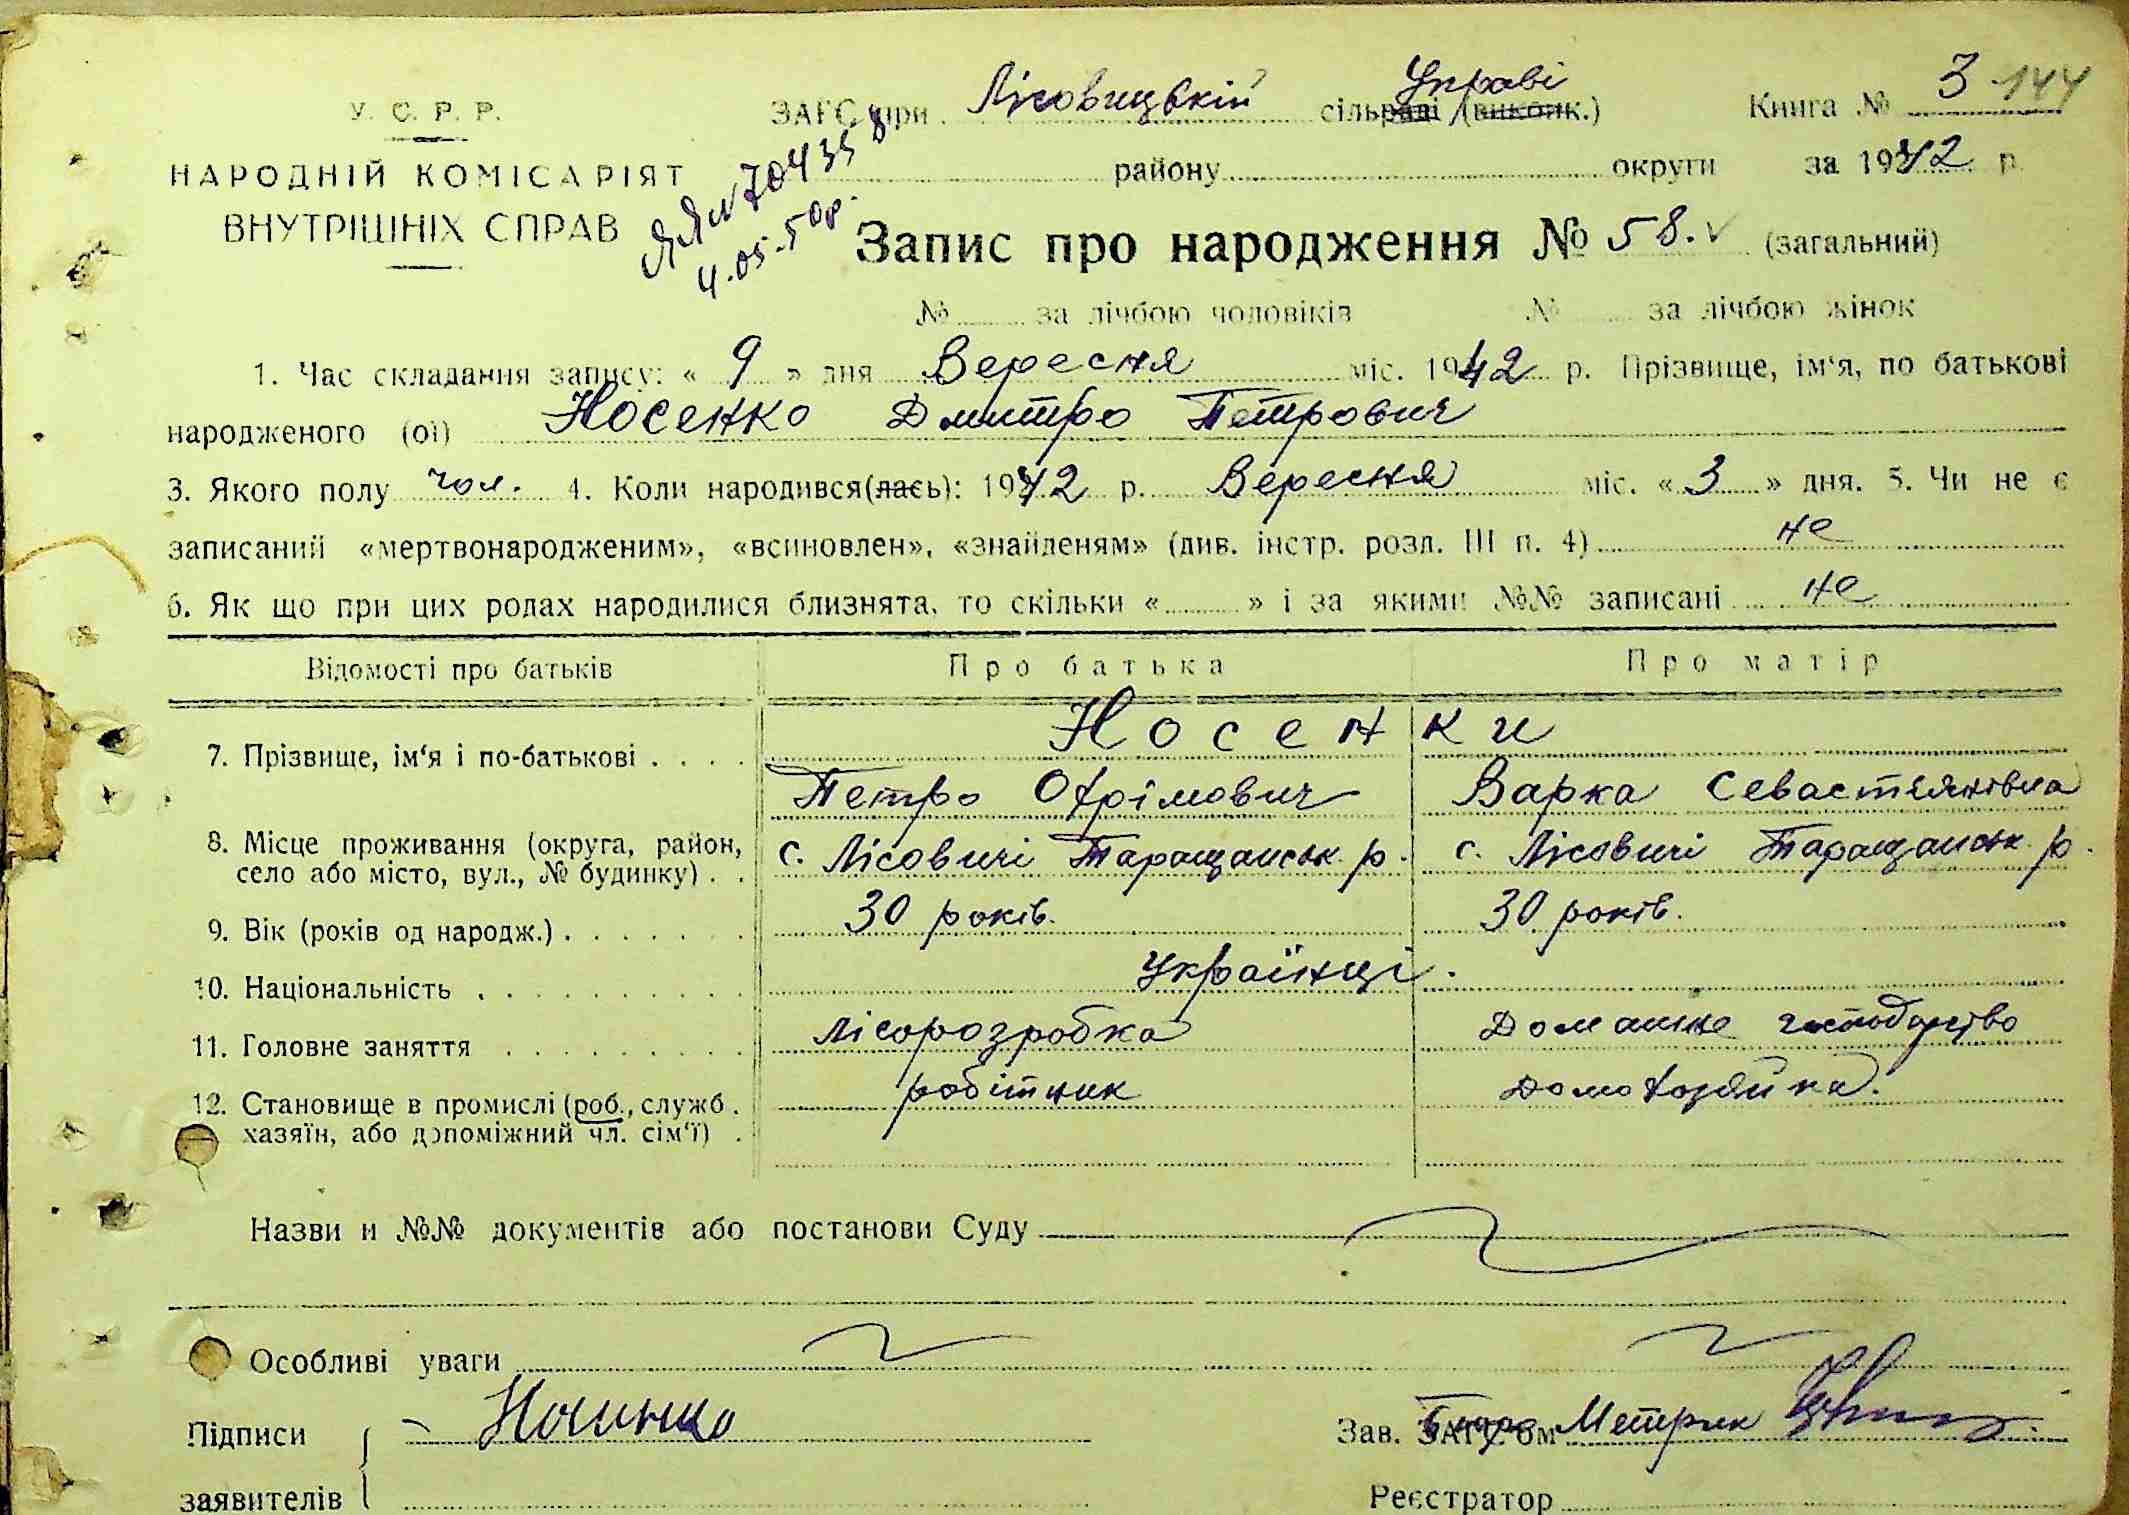 У. С. Р. Р.
НАРОДНІЙ КОМІСАРІЯТ
ВНУТРІШНІХ СПРАВ
ЗАГС при Лісовицькій сільраді Управі (виконк.) Книга № 3 144
району округи за 1942 р.
ЯЯ № 704358
4.05.50р.
Запис про народження № 58. (загальний)
№ за лічбою чоловіків № за лічбою жінок
1. Час складання запису: « 9 » дня Вересня міс. 1942 р. Прізвище, ім'я, по батькові
народженого (ої) Носенко Дмитро Петрович
3. Якого полу чол. 4. Коли народився(лась): 1942 р. Вересня міс. « 3 » дня. 5. Чи не є
записаний «мертвонародженим», «всиновлен», «знайденям» (див. інстр. розл. III п. 4) не
6. Як що при цих родах народилися близнята, то скільки « » і за якими №№ записані не
Відомості про батьків Про батька Про матір
7. Прізвище, ім'я і по-батькові . . . . Носенки
Петро Охрімович Варка Севастіянівна
8. Місце проживання (округа, район,
село або місто, вул., № будинку) . . с. Лісовичі Таращанськ. р. с. Лісовичі Таращанськ. р.
9. Вік (років од народж.) . . . . . . . 30 років. 30 років.
10. Національність . . . . . . . . . . Українці.
11. Головне заняття . . . . . . . . . Лісорозробка Домашнє господарство
12. Становище в промислі (роб., служб.
хазяїн, або допоміжний чл. сім'ї) . робітник домохазяйка.
Назви и №№ документів або постанови Суду
Особливі уваги
Підписи
заявителів
Зав. ЗАГС'ом Бюро Метрик
Реєстратор